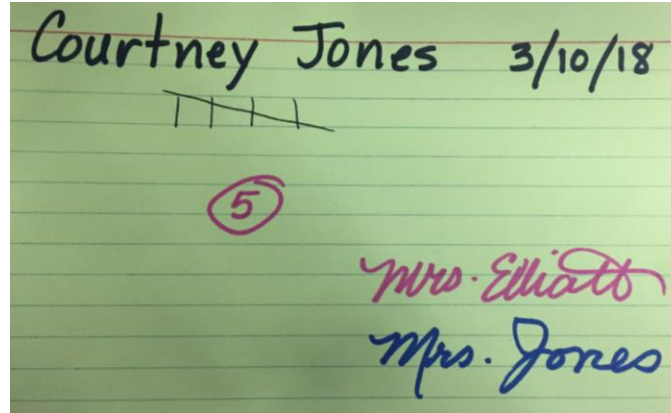 Courtney Jones 3/10/18
5
Mrs. Elliott
Mrs. Jones